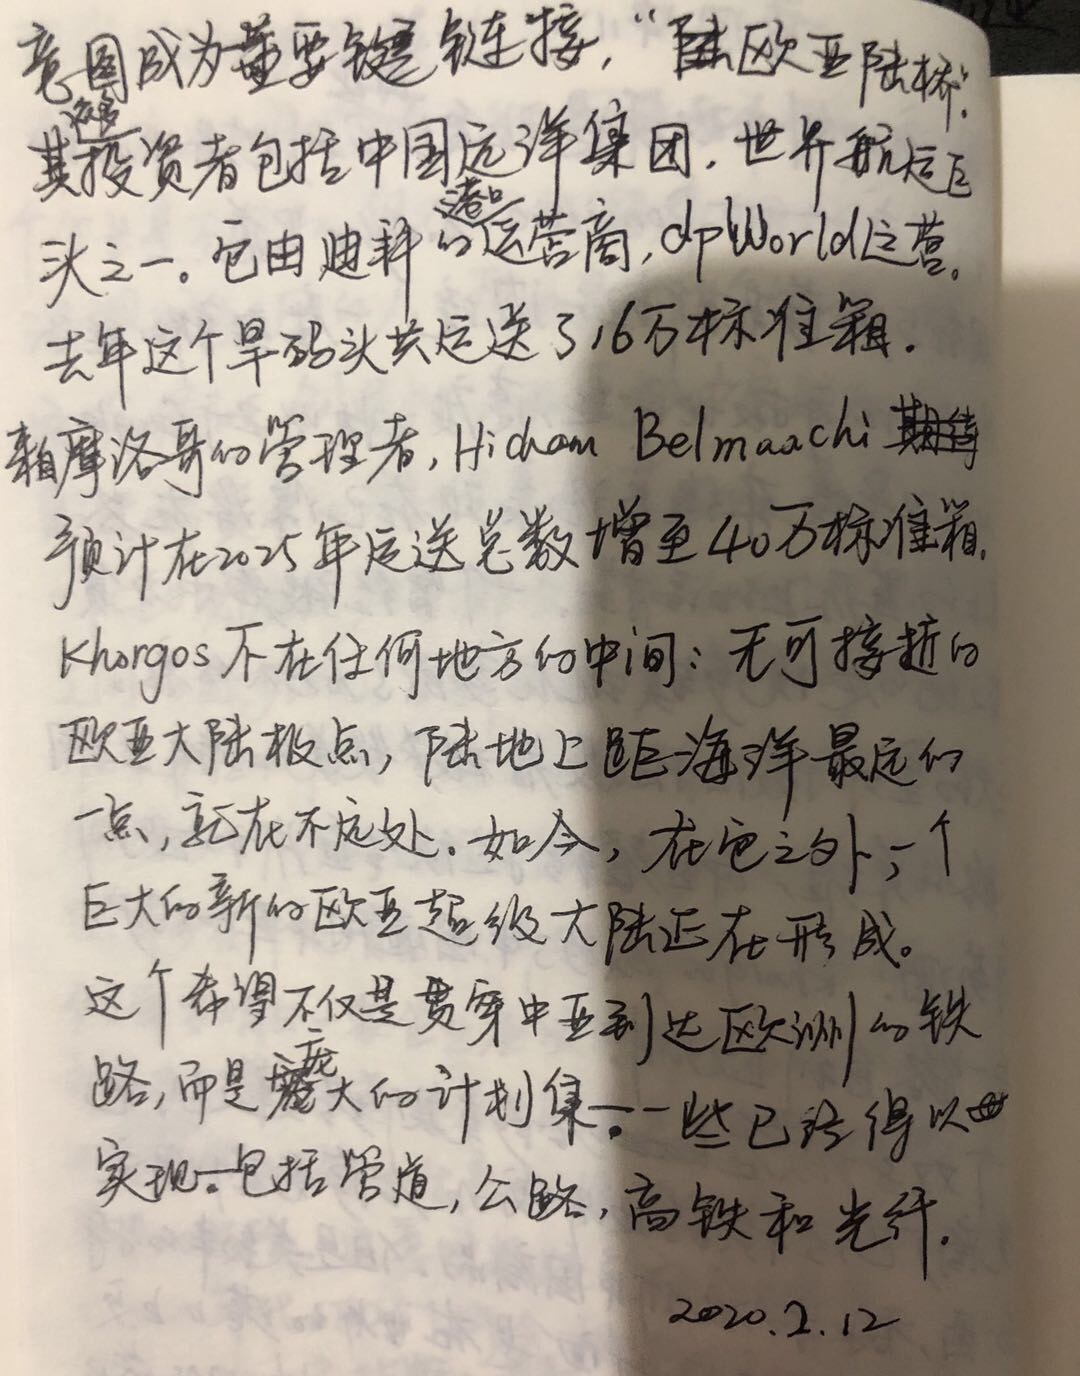 意图成为重要键链接，“陆欧亚陆桥”.
这多
其投资者包括中国远洋集团.世界航运巨
头之一。它由迪拜的港口运营商,dpWorld运营.
去年这个旱码头共运送了16万标准箱.
摩洛哥的管理者,Hicham Belmaachi 期待
预计在2025年运送总数增至40万标准箱.
Khorgos不在任何地方的中间:无可接近的
欧亚大陆极点,陆地上距海洋最远的
一点,就在不远处.如今,在它之外,一个
巨大的新的欧亚超级大陆正在形成。
这个希望不仅是贯穿中亚到达欧洲的铁
路,而是庞大的计划集.一些已经得以
实现.包括管道,公路,高铁和光纤.
2020.2.12